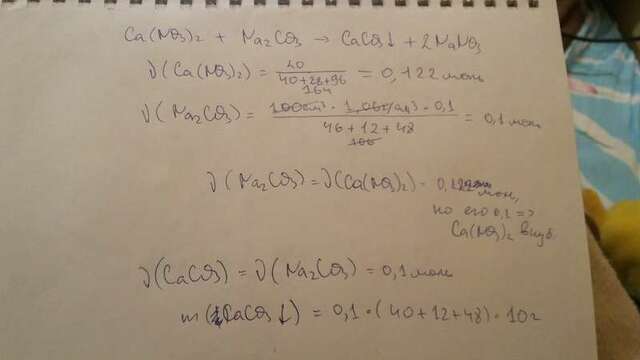 Ca(NO3)2 + Na2CO3 → CaCO3↓ + 2NaNO3
ν(Ca(NO3)2) = 20 / 40+28+96 164 = 0,122 моль
ν(Na2CO3) = 100см³ · 1,06г/см³ · 0,1 / 46+12+48 106 = 0,1 моль
ν(Na2CO3) = ν(Ca(NO3)2) = 0,122 моль,
но его 0,1 =>
Ca(NO3)2 в изб.
ν(CaCO3) = ν(Na2CO3) = 0,1 моль
m(CaCO3↓) = 0,1 · (40+12+48) · 10г